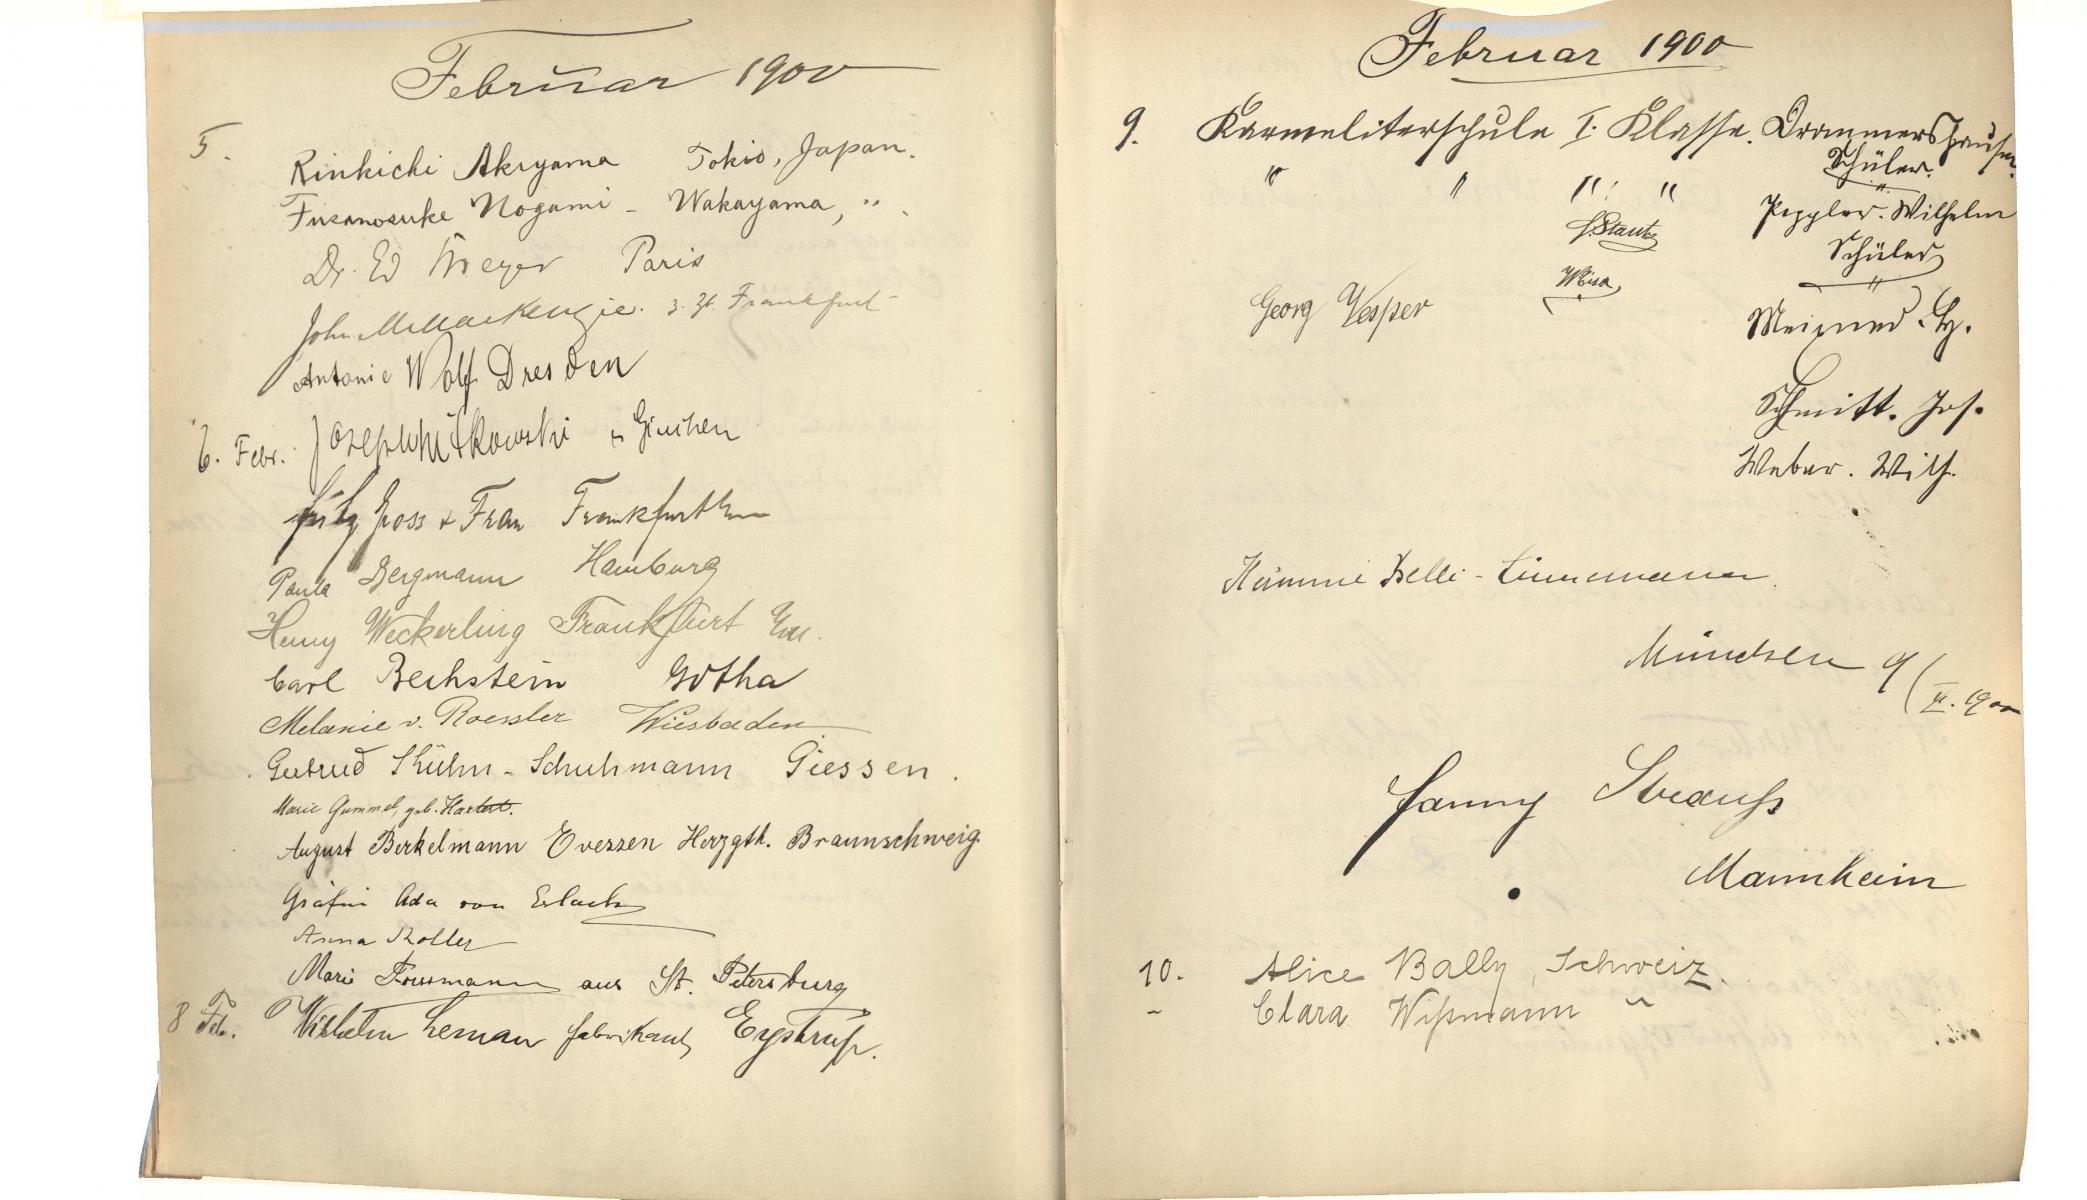 Februar 1900
5.
Rinkichi Akiyama Tokio, Japan.
Fusanosuke Nogami - Wakayama, "
Dr. Ed Meyer Paris
John M Mackenzie. z. Zt. Frankfurt
Antonie Wolf Dresden
6. Febr. Joseph Witkowski
Fritz Gross & Frau Frankfurt
Paula Bergmann Hamburg
Henny Weckerling Frankfurt
Carl Bechstein Gotha
Melanie v. Roessler Wiesbaden
Gertrud Kühn-Schuhmann Giessen.
Marie Gummel, geb. Hartert.
August Berkelmann Evessen Herzgth. Braunschweig.
Gräfin Ada von Erlach
Anna Koller
Marie aus St. Petersburg
8 Feb. Wilhelm Leman Fabrikant, Eystrup.
Februar 1900
9. Karmeliterschule I. Klasse. Drommershausen.
Schüler.
" " " " Peppler. Wilhelm
Stautz
Schüler
Georg Vesper
Schmitt. Jos.
Weber. Wilh.
München 9/II. 1900
Fanny Strauß
Mannheim
10. Alice Bally, Schweiz.
- Clara Wißmann "